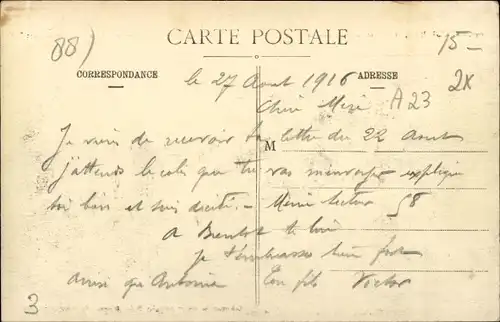 88)
CARTE POSTALE
15-
CORRESPONDANCE
ADRESSE
2x
A23
le 27 Aout 1916
Chère Mère
M
Je viens de recevoir ta lettre du 22 Aout
j'attends le colis que tu vas m'envoyer explique
toi bien et sois - Même secteur 58
A Bientôt te lire
je t'embrasse bien fort
ainsi que Antonin Ton fils Victor
3